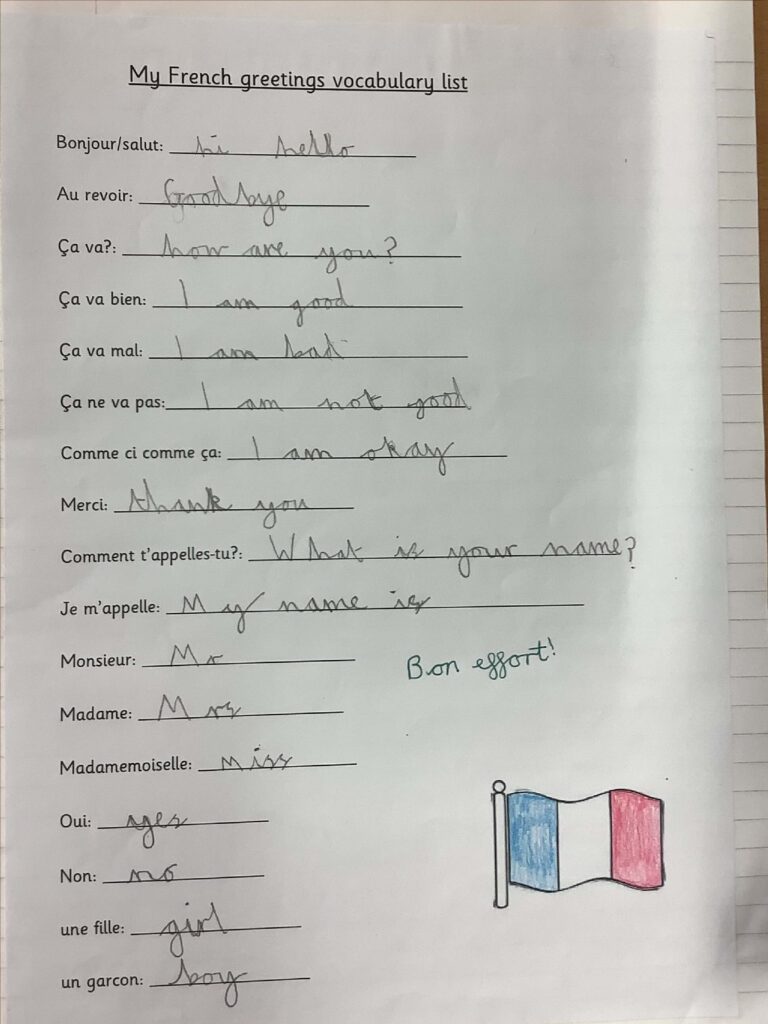 My French greetings vocabulary list
Bonjour/salut: hi hello
Au revoir: Good bye
Ça va?: how are you?
Ça va bien: I am good
Ça va mal: I am bad
Ça ne va pas: I am not good
Comme ci comme ça: I am okay
Merci: thank you
Comment t'appelles-tu?: What is your name?
Je m'appelle: My name is
Monsieur: Mr
Bon effort!
Madame: Mrs
Madamemoiselle: miss
Oui: yes
Non: no
une fille: girl
un garcon: boy